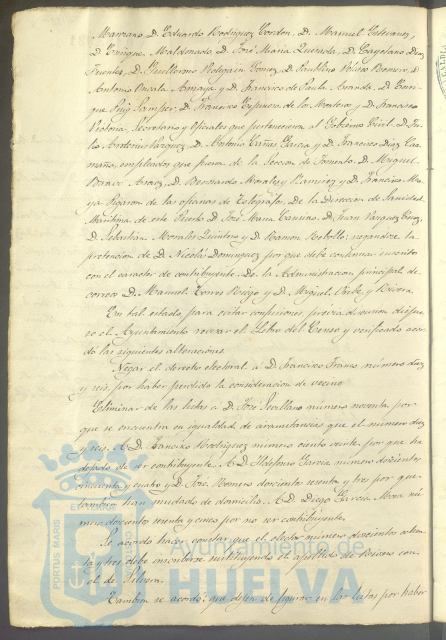 Manzano, D. Eduardo Rodriguez Cordon, D. Manuel Estevanez,
D. Enrique Maldonado, D. José Maria Quesada, D. Cayetano Diaz
Fuentes, D. Guillermo Gomez, D. Paublino Romero, D.
Antonio Amaya y D. Francisco de Paula Aranda, D. Enri-
que Puig Samper, D. Francisco Espinosa de los Monteros y D. Francisco
Victoria, Secretario y Oficiales que pertenecieron al Gobierno Civil. D. Ju-
lio Antonio Vazquez, D. Antonio Cañas Garcia y D. Francisco Diaz Caa-
maño, empleados que fueron de la Seccion de Fomento. D. Miguel
Bravo D. Bernardo Morales y Ramirez y D. Francisco Ma-
ya Pizarro de las oficinas de Telégrafos. De la Direccion de Sanidad
Maritima de este Puerto D. José Maria D. Juan Vazquez
D. Sebastian Morales Quintero y D. Ramon Rebollo; negandose la
pretencion de D. Nicolás Dominguez por que debe continuar inscrito
con el caracter de contribuyente. De la Administracion principal de
correos D. Manuel Torres y D. Miguel Uribe y Rivera.
En tal estado, para evitar confusiones, previa discusion dispu-
so el Ayuntamiento revisar el Libro del Censo y verificado acor-
dó las siguientes alteraciones
Negar el derecho electoral a D. Francisco Franco número diez
y seis, por haber perdido la consideracion de vecino
Eliminar de las listas a D. José Sevillano número noventa, por-
que se encuentra en igualdad de circunstancias que el número diez
y seis. A D. Francisco Rodriguez número ciento veinte, por que ha
dejado de ser contribuyente. A D. Ildefonso Garcia número doscientos
cincuenta y cuatro y D. José Romero doscientos sesenta y tres por que
tambien han mudado de domicilio. A D. Diego Garcia Mora nú-
mero doscientos sesenta y cinco por no ser contribuyente.
Se acordó hacer constar que el elector número doscientos seten-
ta y tres debe inscribirse sustituyendo el apellido de con
el de
Tambien se acordó: que dejen de figurar en las listas por haber
Ayuntamiento de
HUELVA
PORTUS MARIS